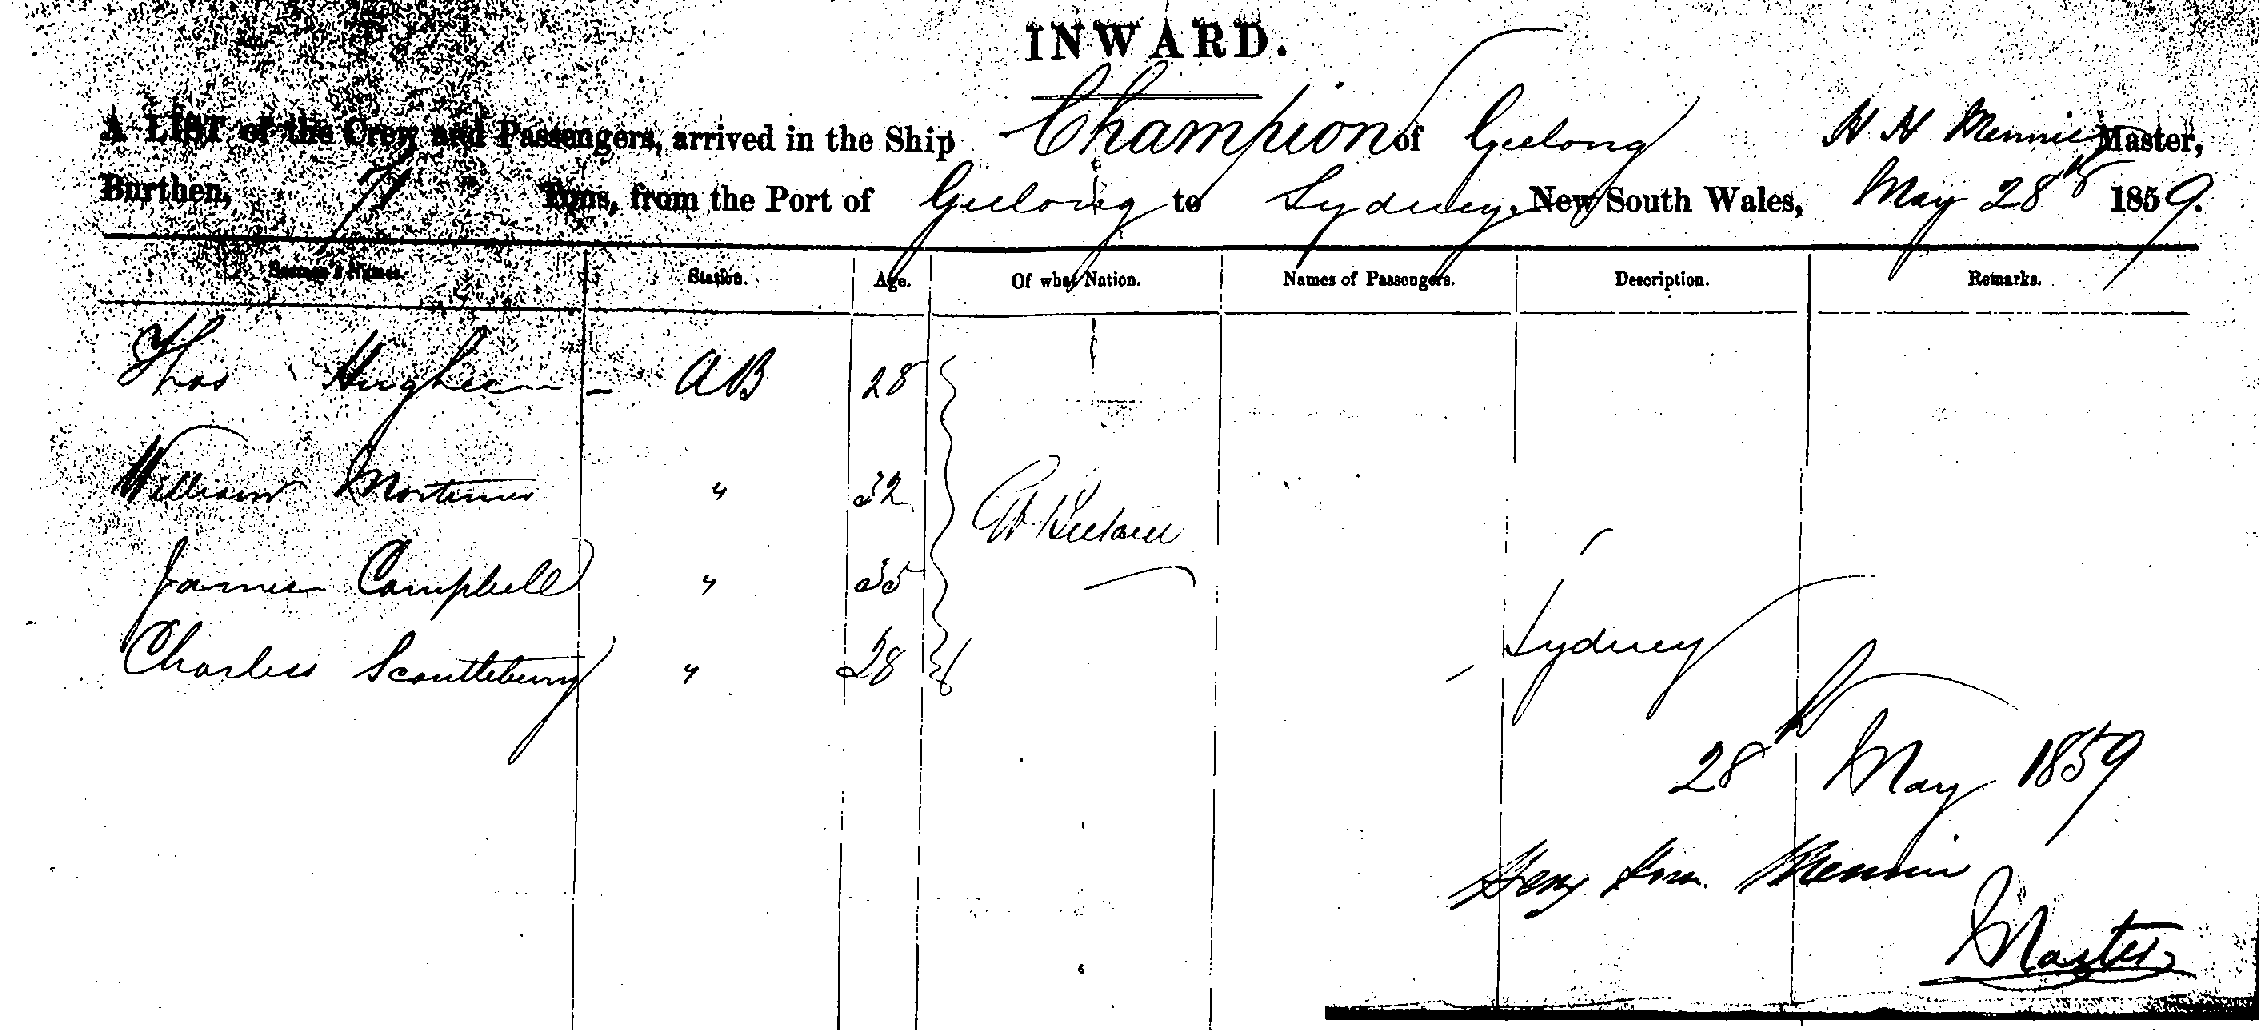 INWARD.
A LIST of the Crew and Passengers, arrived in the Ship Champion of Geelong H H Mennie Master,
Burthen, 71 Tons, from the Port of Geelong to Sydney, New South Wales, May 28th 1859.
Seaman's Names. Station. Age. Of what Nation. Names of Passengers. Description. Remarks.
Thos Hughes - AB 28
William Mortimer " 32
Gt Britain
James Campbell " 35
Charles " 28
Sydney
28th May 1859
Mennie
Master